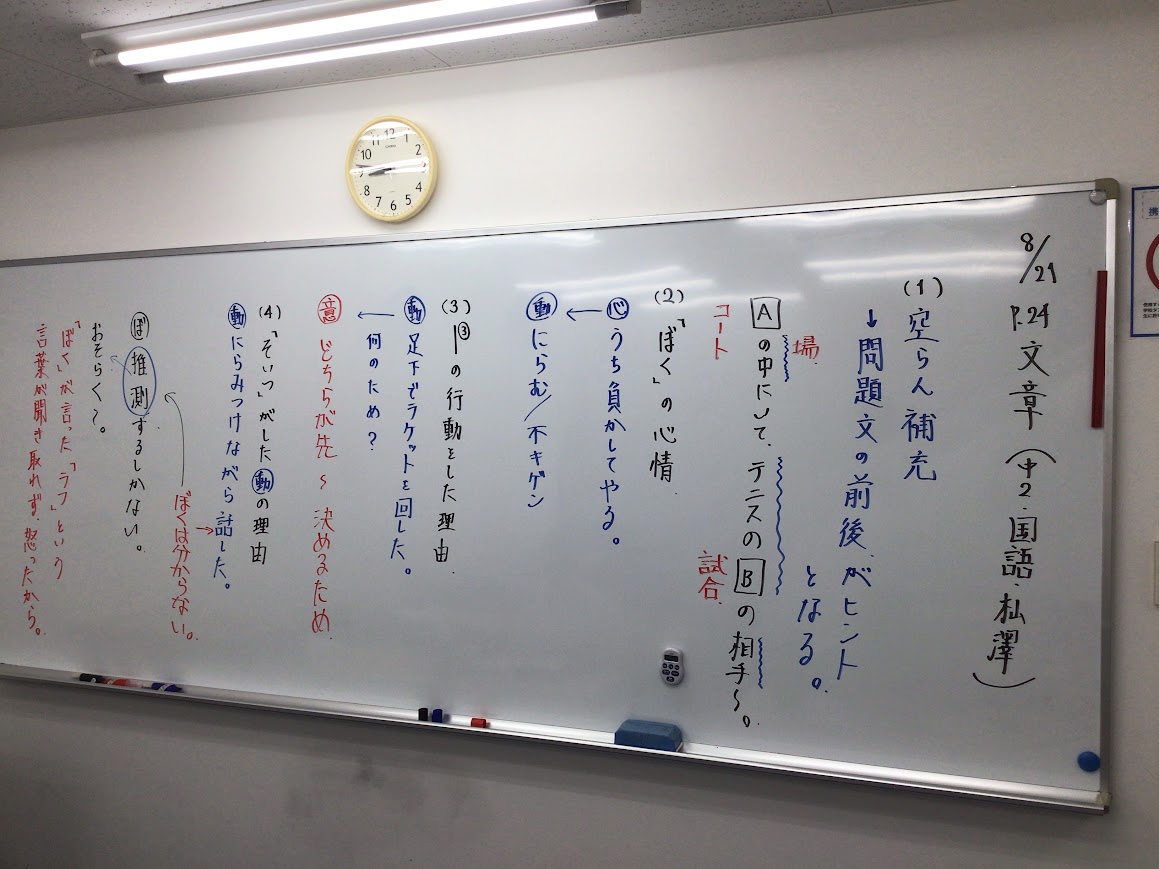 8/21 P.24 文章(中2・国語・杣澤)
(1) 空らん補充
→問題文の前後がヒント
となる。
場
Aの中にいて、テニスのBの相手〜。
コート
試合
(2) 「ぼく」の心情
心 うち負かしてやる。
動 にらむ/不キゲン
(3) ③の行動をした理由
動 足下でラケットを回した。
何のため?
意 どちらが先〜決めるため
(4) 「そいつ」がした動の理由
動 にらみつけながら話した。
ぼくは分からない。
ぼ 推測するしかない。
おそらく?。
「ぼく」が言った「ラフ」という
言葉が聞き取れず、怒ったから。
12
1
2
3
4
5
6
7
8
9
10
11